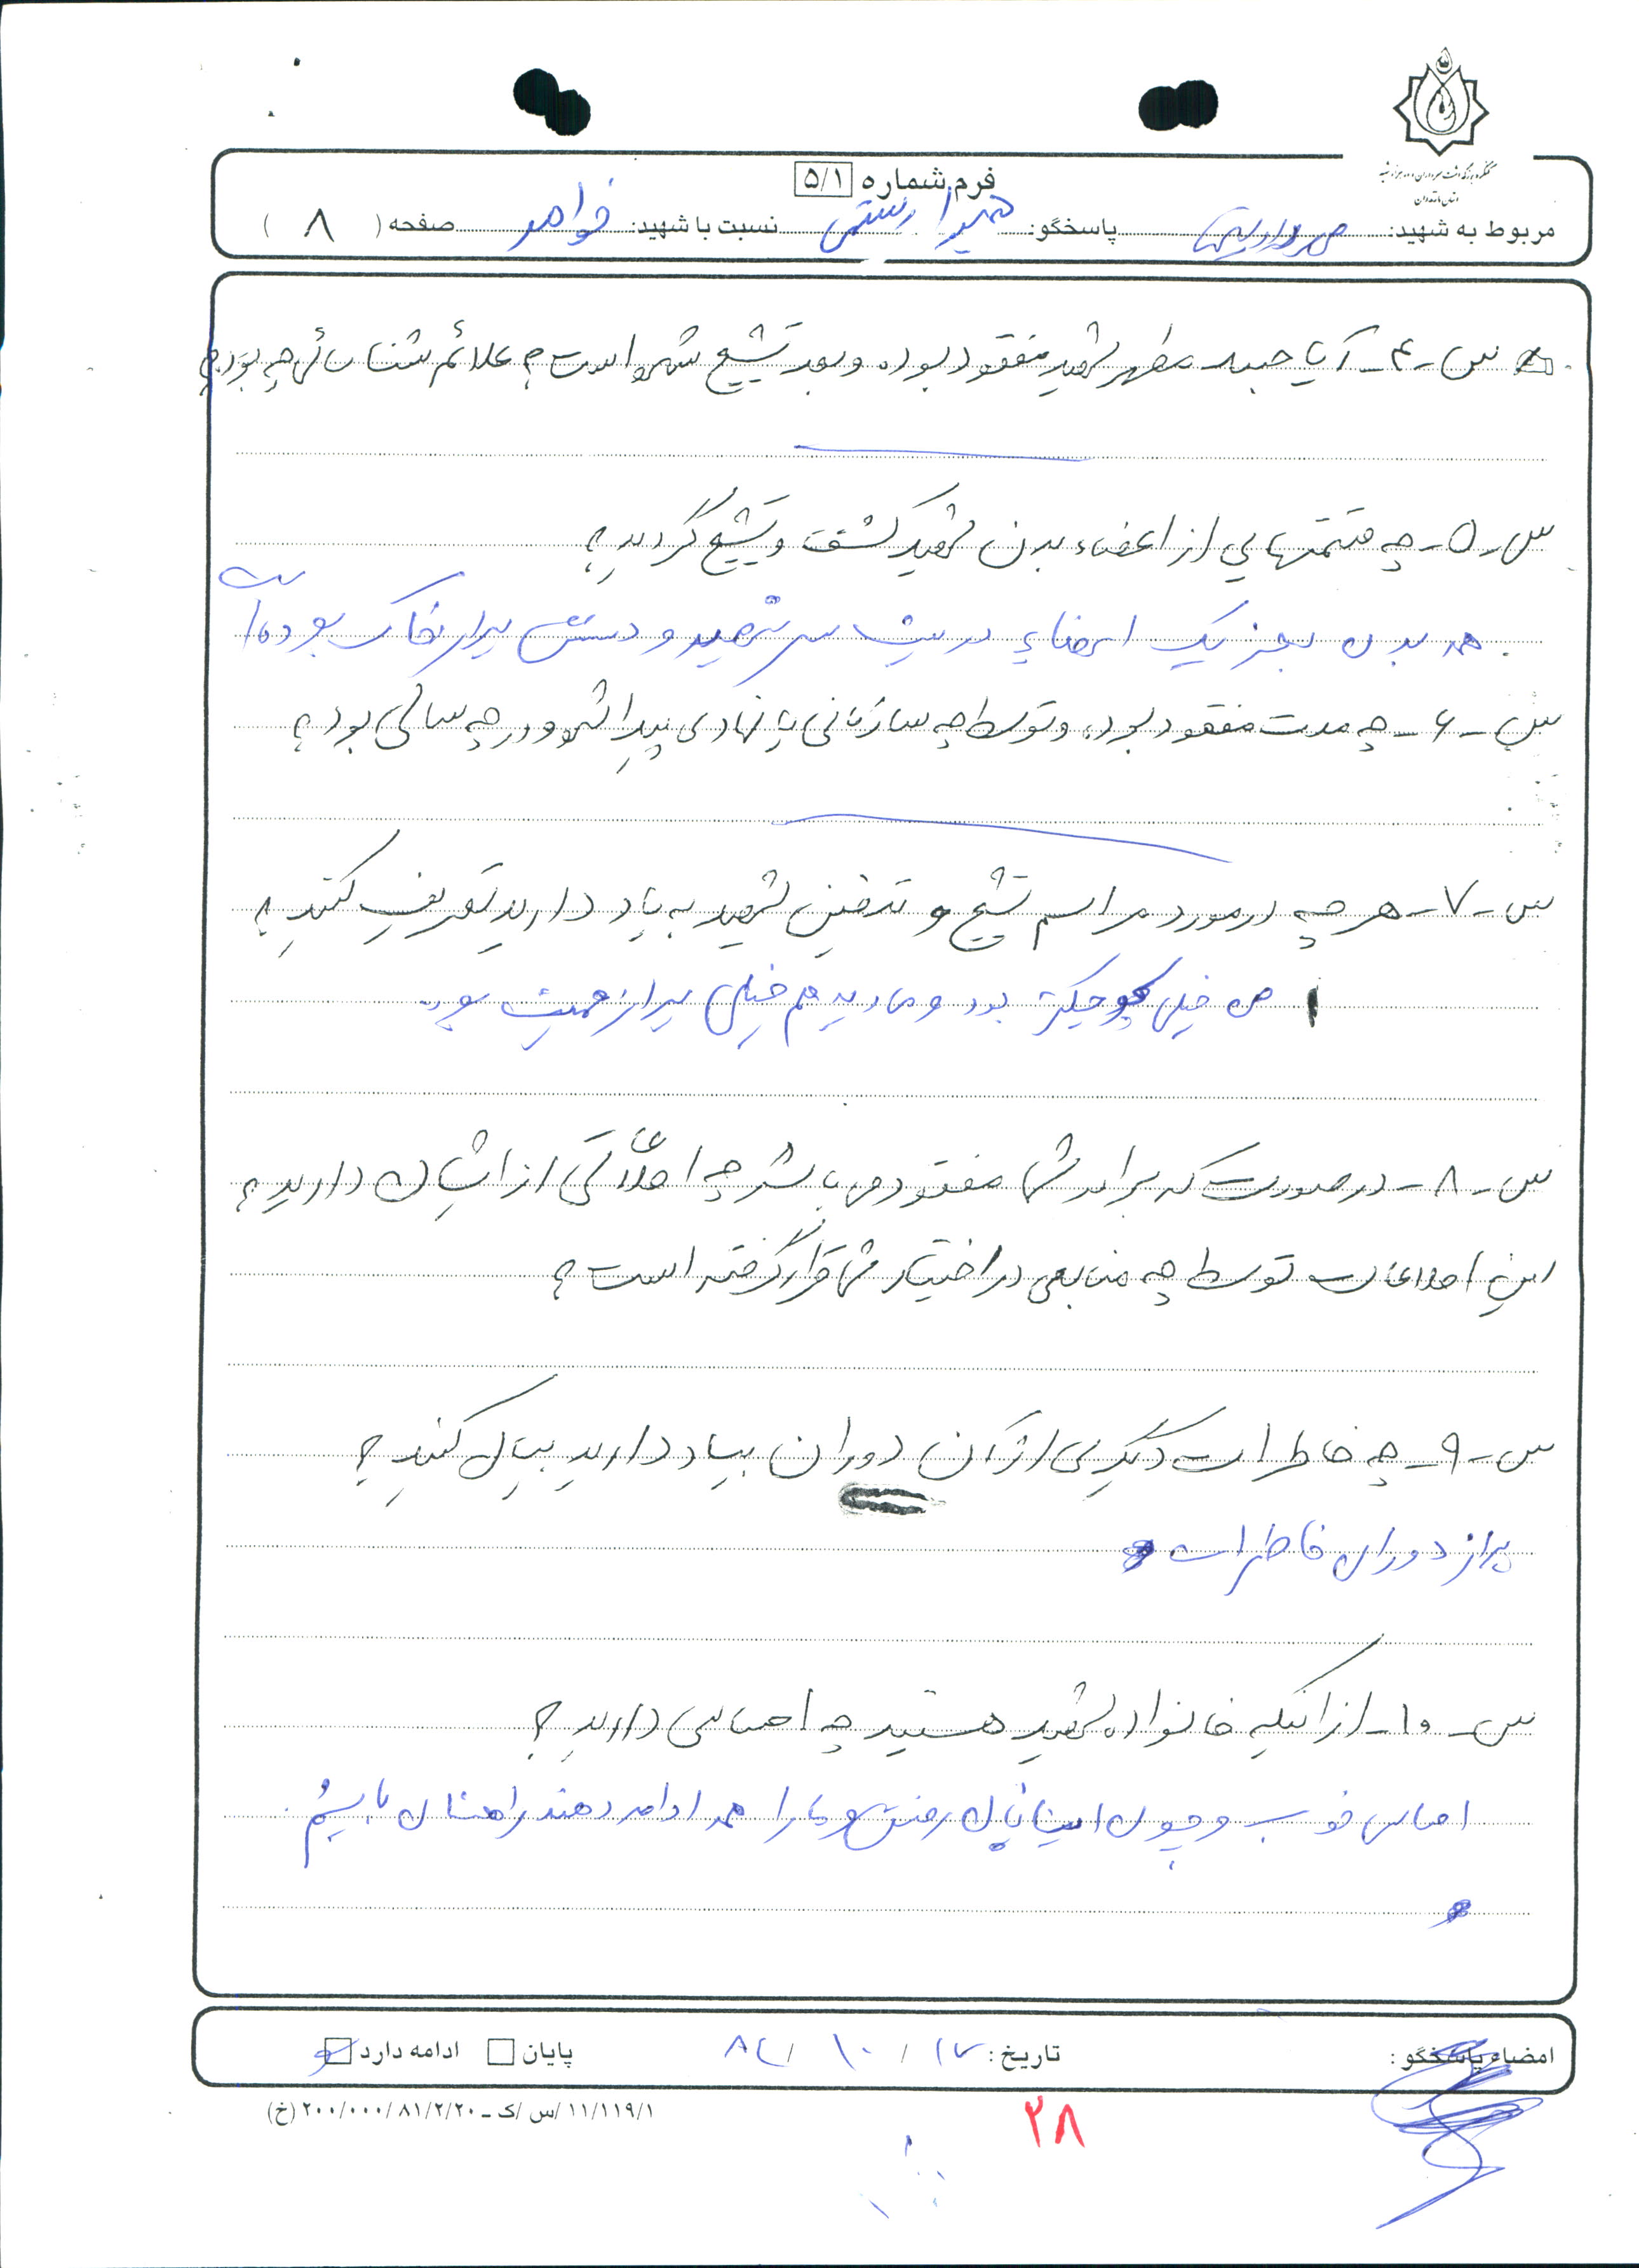 کنگره بزرگداشت سرداران و ده هزار شهید
استان مازندران
فرم شماره ۵/۱
مربوط به شهید: پاسخگو: حمیرا رستمی نسبت با شهید: خواهر صفحه ( ۸ )
س-۴- آیا جسد مطهر شهید مفقود بوده و بعد تشییع شده است؟ علائم شناسائی چه بود؟
س-۵- چه قسمتهایی از اعضاء بدن شهید کشف و تشییع گردید؟
همه بدن بجز یک اعضاء در پشت سر شهید و دستش پراز خاک بوده است
س-۶- چه مدت مفقود بود، و توسط چه سازمانی یا نهادی پیدا شد و در چه سالی بود؟
س-۷- هر چه در مورد مراسم تشیع و تدفین شهید به یاد دارید تعریف کنید؟
من خیلی کوچیکتر بود و ما دیدیم خیلی پراز جمعیت بود.
س-۸- در صورت که برادر شما مفقود می باشد چه اطلاعاتی از ایشان دارید؟
این اطلاعات توسط چه منابعی در اختیار شما قرار گرفته است؟
س-۹- چه خاطرات دیگری از آن دوران بیاد دارید بیان کنید؟
پراز دوران خاطرات
س-۱۰- از اینکه خانواده شهید هستید چه احساسی دارید؟
احساس خوب و چون ایشان رفتن و ما را همه ادامه دهنده راهشان باشیم.
امضاء پاسخگو: تاریخ: ۱۷ / ۱۰ / ۸۲ پایان ادامه دارد
۱۱/۱۱۹/۱/س/ک ـ ۲۰۰/۰۰۰/۸۱/۲/۲۰ (خ)
۲۸